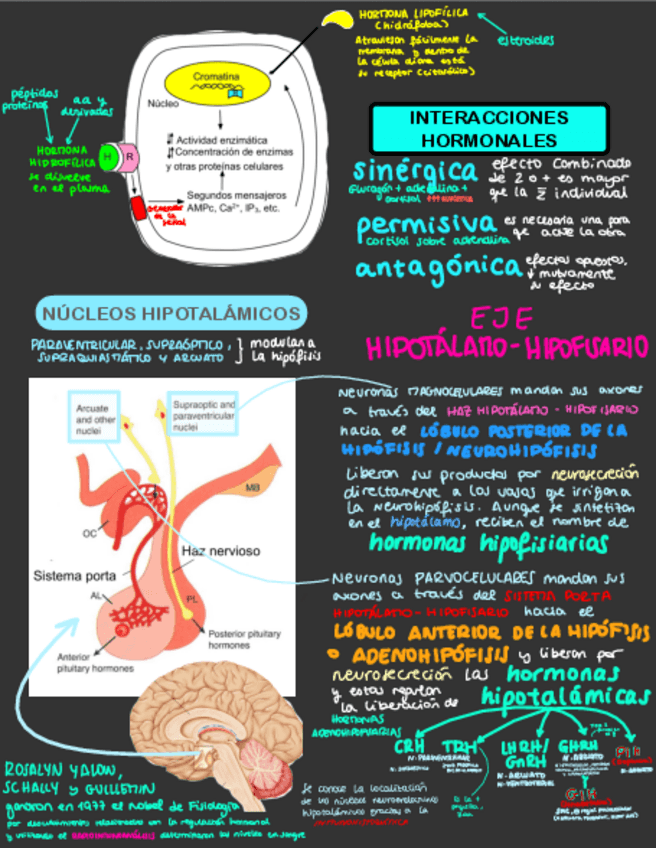 HORMONA LIPOFÍLICA
(hidrófoba)
Atraviesan fácilmente la
membrana y dentro de
la célula diana está
su receptor (citosólico)
esteroides
péptidos
proteínas
aa y
derivados
HORMONA
HIDROFÍLICA
se disuelve
en el plasma
H
R
Cromatina
Núcleo
Actividad enzimática
Concentración de enzimas
y otras proteínas celulares
Segundos mensajeros
AMPc, Ca²⁺, IP₃, etc.
de la
señal
INTERACCIONES
HORMONALES
sinérgica
glucagón + adrenalina +
cortisol
efecto combinado
de 2 o + es mayor
que la Σ individual
permisiva
cortisol sobre adrenalina
es necesaria una para
que actúe la otra
antagónica
efectos opuestos,
↓ mutuamente
su efecto
NÚCLEOS HIPOTALÁMICOS
PARAVENTRICULAR, SUPRAÓPTICO,
SUPRAQUIASMÁTICO Y ARCUATO
modulan a
la hipófisis
EJE
HIPOTÁLAMO-HIPOFISARIO
Arcuate
and other
nuclei
Supraoptic and
paraventricular
nuclei
MB
OC
Haz nervioso
Sistema porta
AL
PL
Posterior pituitary
hormones
Anterior
pituitary hormones
Neuronas MAGNOCELULARES mandan sus axones
a través del HAZ HIPOTÁLAMO-HIPOFISARIO
hacia el LÓBULO POSTERIOR DE LA
HIPÓFISIS / NEUROHIPÓFISIS
Liberan sus productos por neurosecreción
directamente a los vasos que irrigan a
la neurohipófisis. Aunque se sintetizan
en el hipotálamo, reciben el nombre de
hormonas hipofisiarias
Neuronas PARVOCELULARES mandan sus
axones a través del SISTEMA PORTA
HIPOTÁLAMO-HIPOFISARIO hacia el
LÓBULO ANTERIOR DE LA HIPÓFISIS
o ADENOHIPÓFISIS y liberan por
neurosecreción las hormonas
hipotalámicas
y estas regulan
la liberación de
HORMONAS
ADENOHIPOFISARIAS
CRH
N. PARAVENTRICULAR
TRH
LHRH/
GNRH
N. ARCUATO
GHRH
N. ARCUATO
N. ARCUATO
GIH
Se conoce la localización
de los núcleos
hipotalámicos gracias a la
ROSALYN YALOW,
SCHALLY y GUILLEMIN
ganaron en 1977 el nobel de Fisiología
por descubrimientos relacionados con la regulación hormonal
y utilizando el RADIOINMUNOANÁLISIS determinaron los niveles en sangre